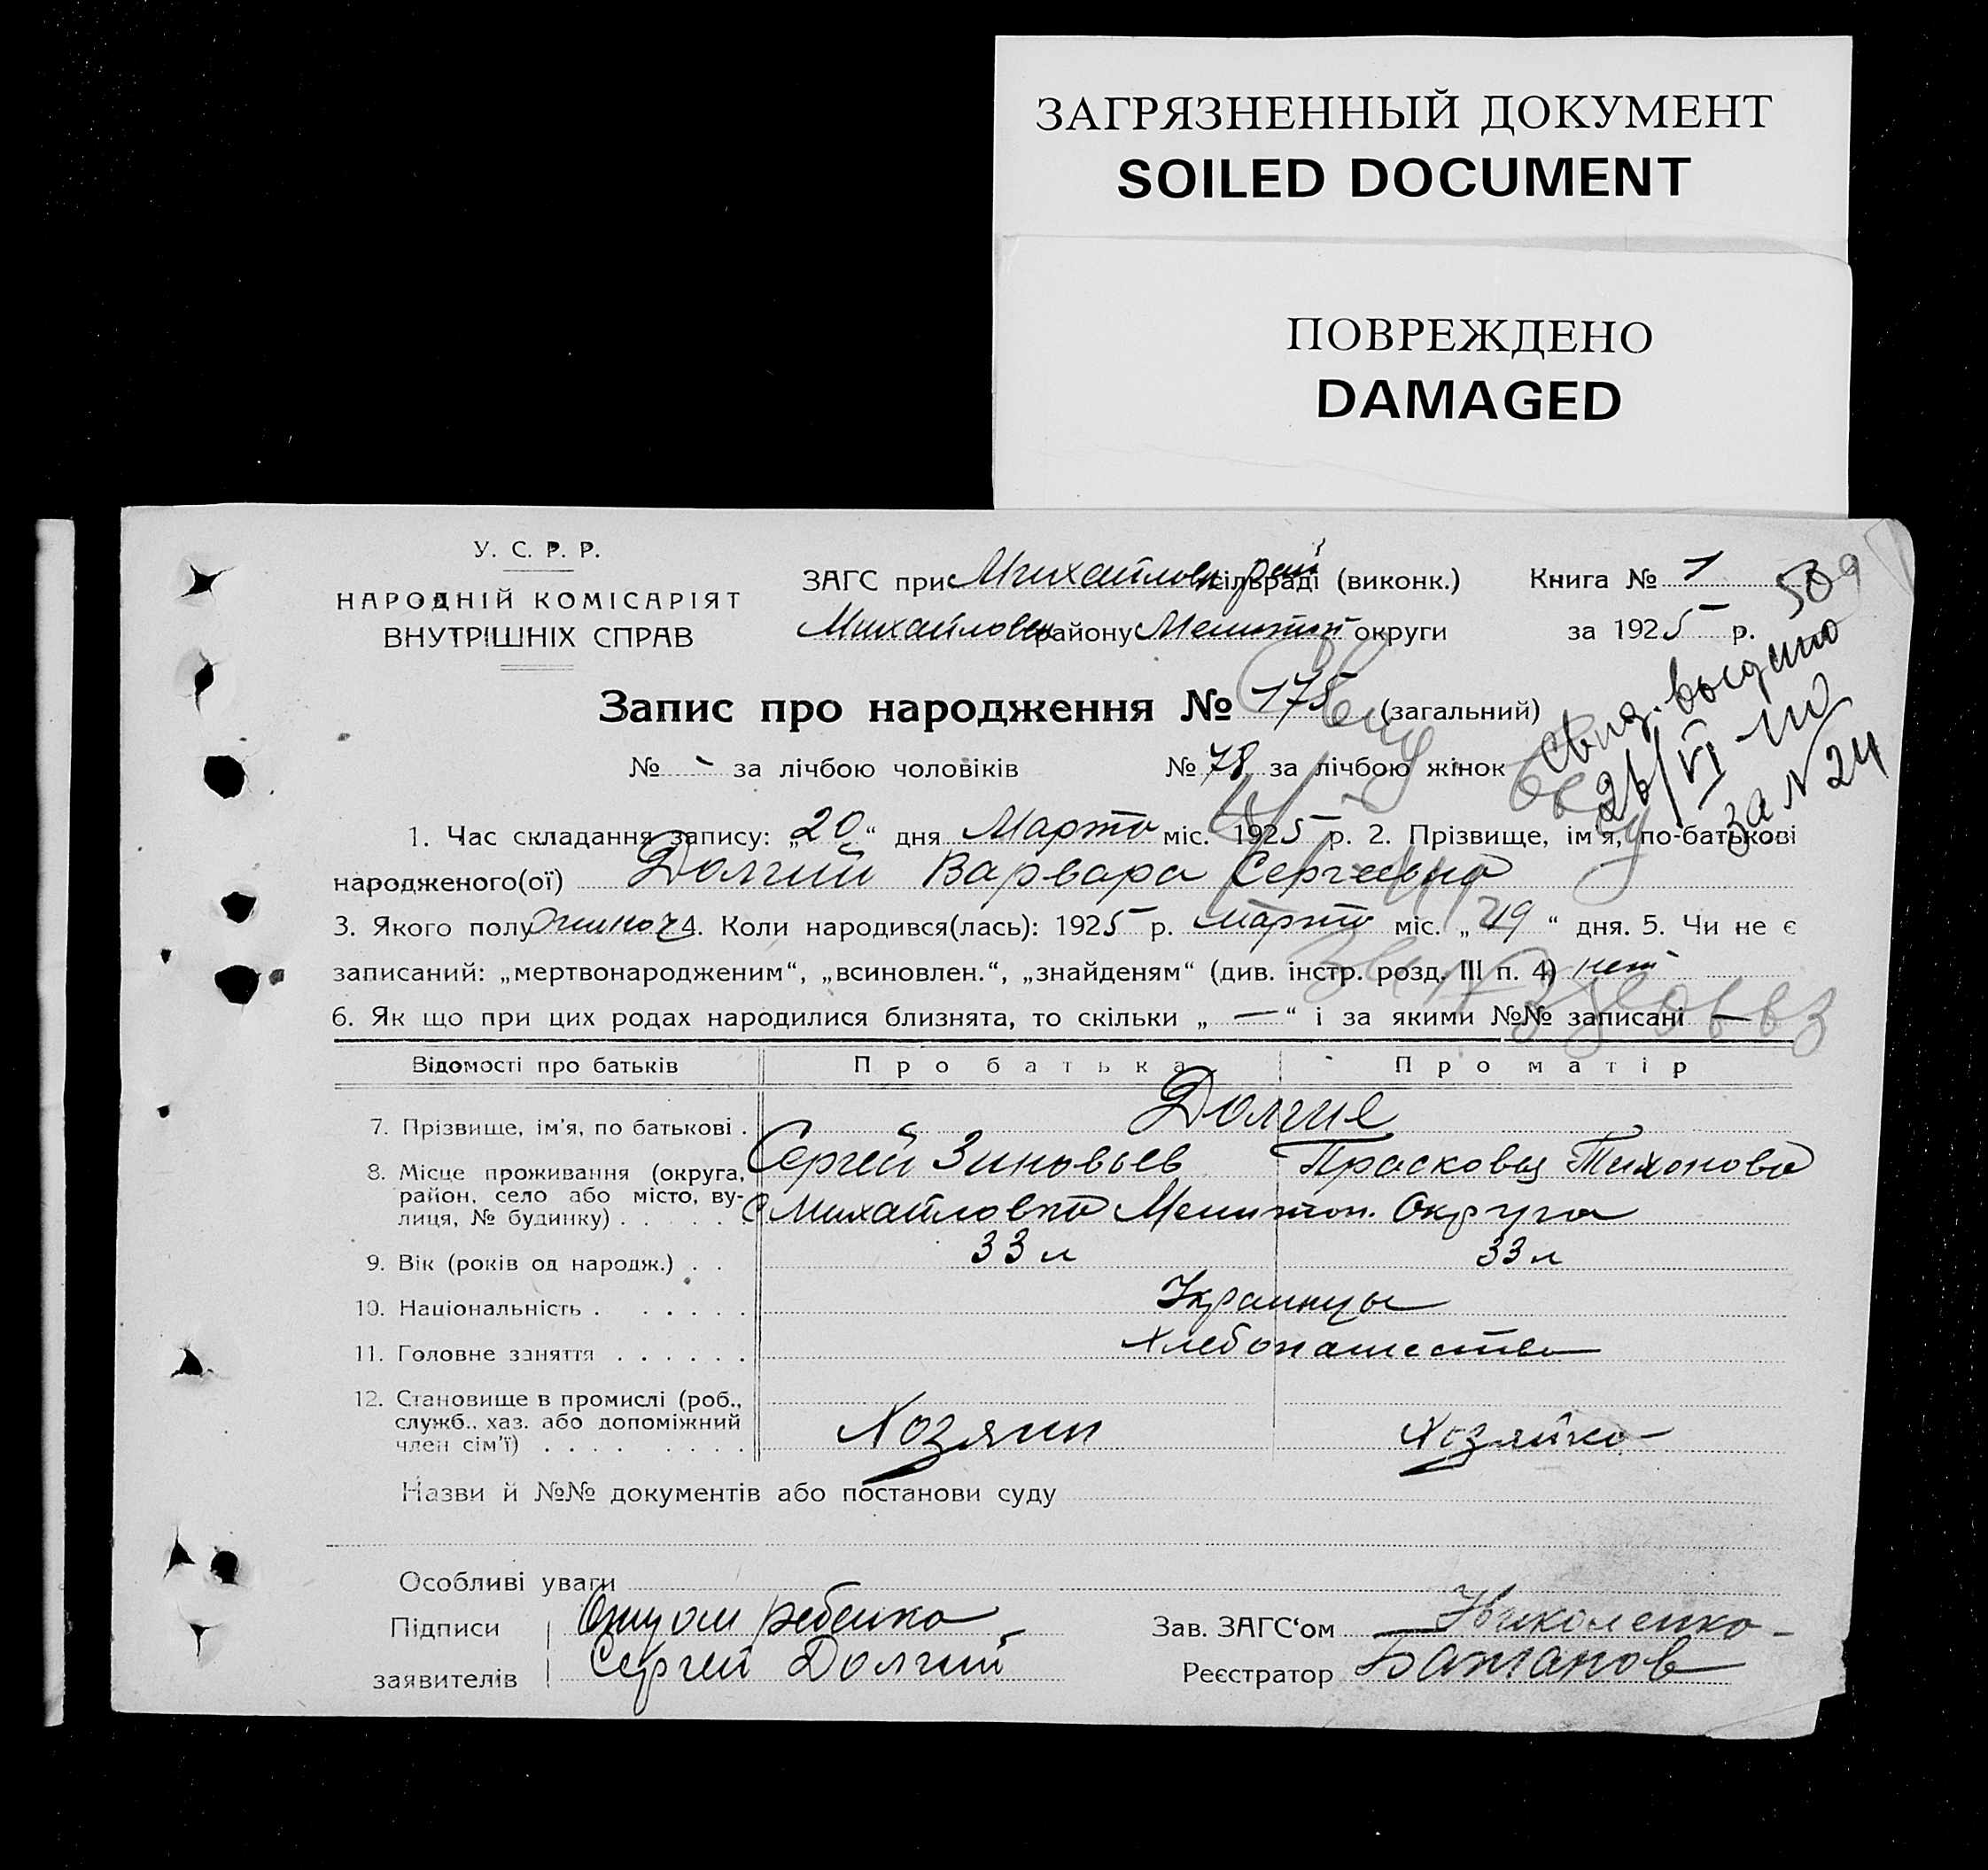 ЗАГРЯЗНЕННЫЙ ДОКУМЕНТ
SOILED DOCUMENT
ПОВРЕЖДЕНО
DAMAGED
У. С. Р. Р.
НАРОДНІЙ КОМІСАРІЯТ
ВНУТРІШНІХ СПРАВ
ЗАГС при Михайловк рай сільраді (виконк.)
Михайловск району Мелитоп округи
Книга № 1
за 1925 р.
509
Свид. выдано
26/VI-
за № 24
Запис про народження № 175 (загальний)
№ - за лічбою чоловіків № 78 за лічбою жінок
1. Час складання запису: „20“ дня Марта міс. 1925 р. 2. Прізвище, ім'я, по-батькові
народженого(ої) Долгий Варвара Сергеевна
3. Якого полу жиноч 4. Коли народився(лась): 1925 р. марта міс. „19“ дня. 5. Чи не є
записаний: „мертвонародженим“, „всиновлен.“, „знайденям“ (див. інстр. розд. III п. 4) нет
6. Як що при цих родах народилися близнята, то скільки „ — “ і за якими №№ записані —
Відомості про батьків Про батька Про матір
7. Прізвище, ім'я, по батькові . Долгие
Сергей Зиновьев Прасковья Тихонова
8. Місце проживання (округа, район, село або місто, вулиця, № будинку) . . . . . с Михайловка Мелитоп. Округа
9. Вік (років од народж.) . . 33 л 33 л
10. Національність . . . . . . Украинцы
11. Головне заняття . . . . . . Хлебопашество
12. Становище в промислі (роб.,
служб., хаз. або допоміжний
член сім'ї) . . . . . . . . Хозяин Хозяйка
Назви й №№ документів або постанови суду
Особливі уваги
Підписи заявителів Отцом ребенка
Сергей Долгий
Зав. ЗАГС'ом Николенко
Реєстратор Бажанов